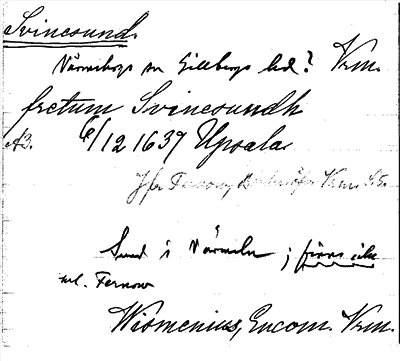 Svinesund.
Värmskogs sn Gillbergs hd? Vrm.
fretum Svinesundh
A3. 6/12 1637 Upsala
Jfr Fernow, Vrm. S.
Sund i Värmeln ; finns icke
enl. Fernow
Wismenius, Encom. Vrm.